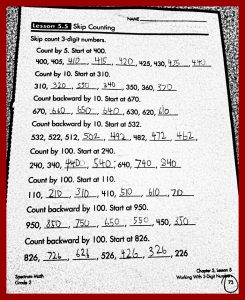 NAME
Lesson 5.5 Skip Counting
Skip count 3-digit numbers.
Count by 5. Start at 400.
400, 405, 410, 415, 420, 425, 430, 435, 440
Count by 10. Start at 310.
310, 320, 330, 340, 350, 360, 370
Count backward by 10. Start at 670.
670, 660, 650, 640, 630, 620, 610
Count backward by 10. Start at 532.
532, 522, 512, 502, 492, 482, 472, 462
Count by 100. Start at 240.
240, 340, 440, 540, 640, 740, 840
Count by 100. Start at 110.
110, 210, 310, 410, 510, 610, 710
Count backward by 100. Start at 950.
950, 850, 750, 650, 550, 450, 350
Count backward by 100. Start at 826.
826, 726, 626, 526, 426, 326, 226
Spectrum Math
Grade 2
Chapter 5, Lesson 5
Working With 3-Digit Numbers
73